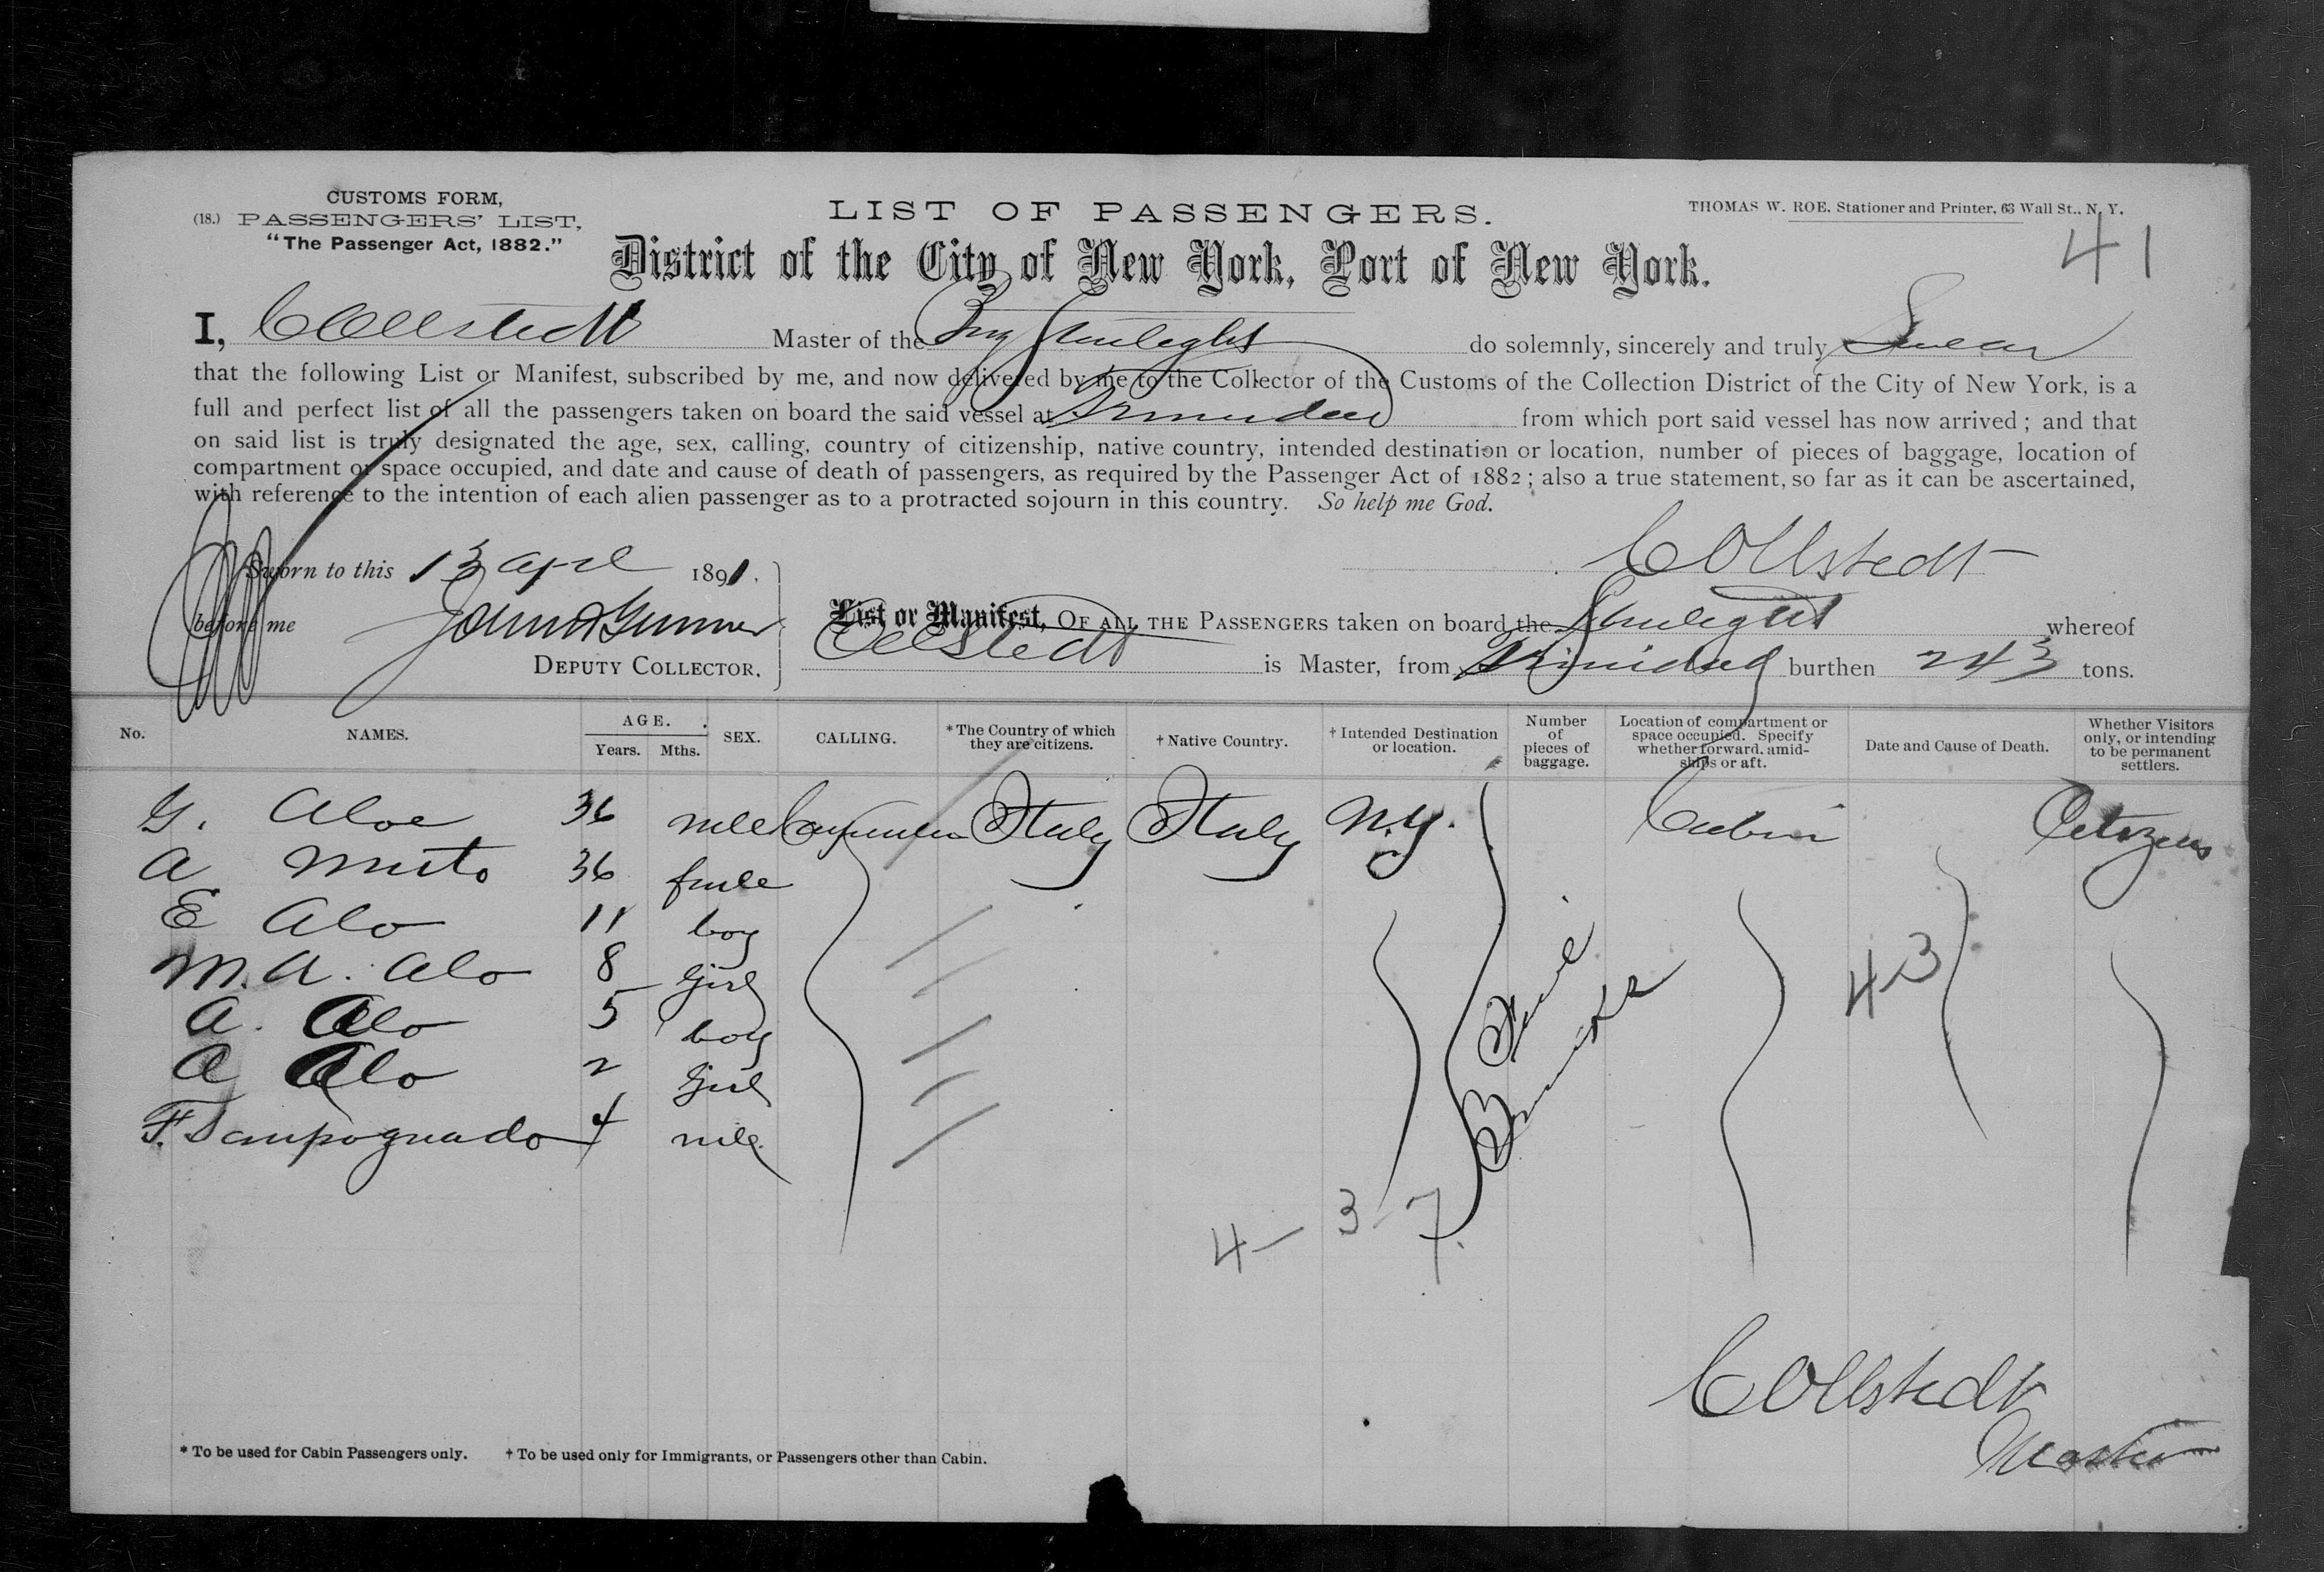 CUSTOMS FORM,
(18.) PASSENGERS' LIST,
"The Passenger Act, 1882."
LIST OF PASSENGERS.
THOMAS W. ROE, Stationer and Printer, 63 Wall St., N. Y.
41
District of the City of New York, Port of New York.
I, C Ollstedt Master of the Brig Starlight do solemnly, sincerely and truly Swear
that the following List or Manifest, subscribed by me, and now delivered by me to the Collector of the Customs of the Collection District of the City of New York, is a
full and perfect list of all the passengers taken on board the said vessel at Trinidad from which port said vessel has now arrived; and that
on said list is truly designated the age, sex, calling, country of citizenship, native country, intended destination or location, number of pieces of baggage, location of
compartment or space occupied, and date and cause of death of passengers, as required by the Passenger Act of 1882; also a true statement, so far as it can be ascertained,
with reference to the intention of each alien passenger as to a protracted sojourn in this country. So help me God.
Sworn to this 13 Apl 1891.
C Ollstedt
before me
DEPUTY COLLECTOR.
List or Manifest, OF ALL THE PASSENGERS taken on board the Starlight whereof
Ollstedt is Master, from Trinidad burthen 243 tons.
No. NAMES. AGE. Years. Mths. SEX. CALLING. *The Country of which they are citizens. †Native Country. †Intended Destination or location. Number of pieces of baggage. Location of compartment or space occupied. Specify whether forward, amidships or aft. Date and Cause of Death. Whether Visitors only, or intending to be permanent settlers.
G. Aloe 36 mle Carpenter Italy Italy N.Y. Cabin Citizens
A Muto 36 fmle
E Alo 11 boy
M. A. Alo 8 girl
A. Alo 5 boy
A Alo 2 girl
F. 4 mle.
3 Trunks
43
4 - 3 - 7.
C Ollstedt
Master
* To be used for Cabin Passengers only. † To be used only for Immigrants, or Passengers other than Cabin.